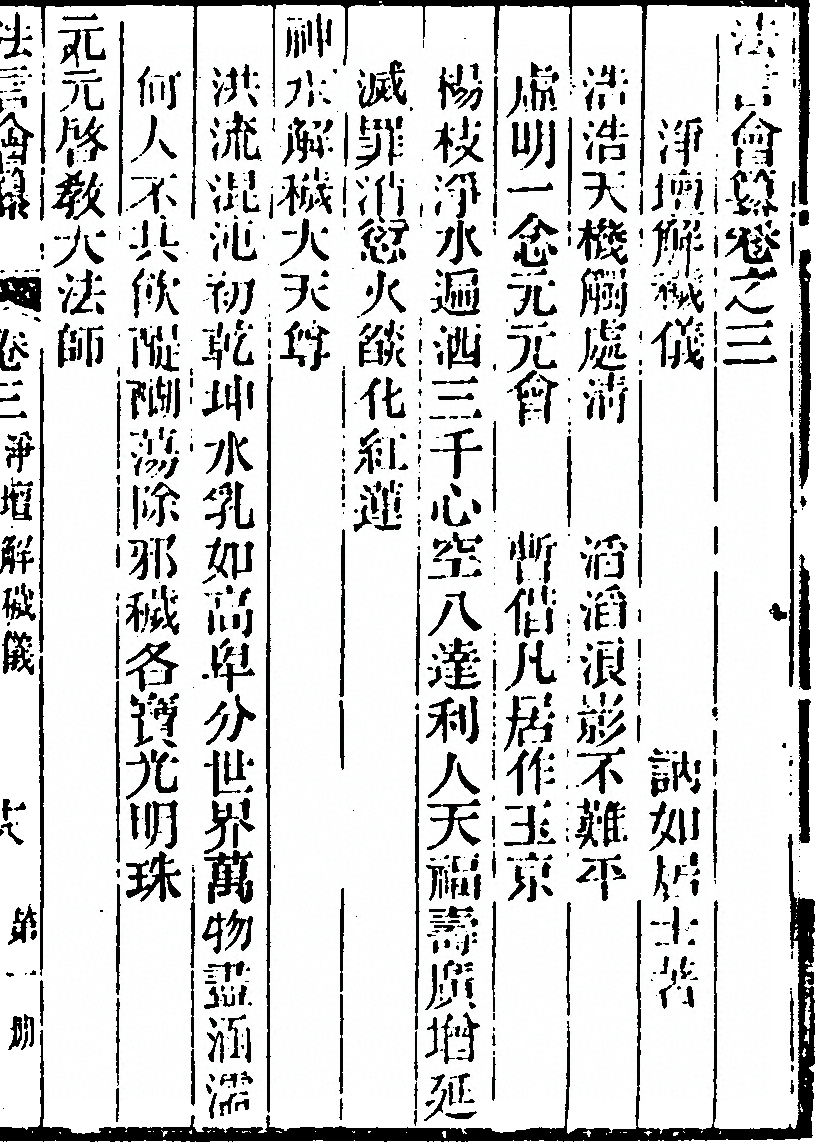 法言會纂卷之三
淨壇解穢儀 訥如居士著
浩浩天機觸處清 滔滔浪影不難平
虛明一念元元會 暫借凡居作玉京
楊枝淨水遍洒三千心空八達利人天福壽廣增延
滅罪消愆火燄化紅蓮
神水解穢大天尊
洪流混沌初乾坤水乳如高卑分世界萬物盡涵濡
何人不共飲醍醐蕩除邪穢各寶光明珠
元元啓教大法師
法言會纂 卷三 淨壇解穢儀 第一册